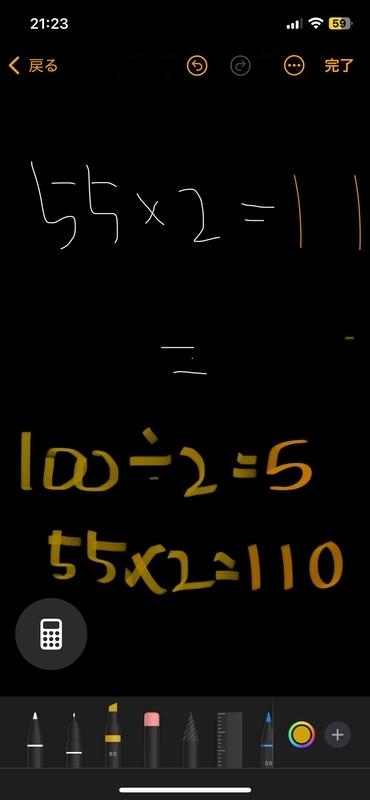 21:23
59
戻る
完了
55×2=11
=
100÷2=5
55×2=110
80
50